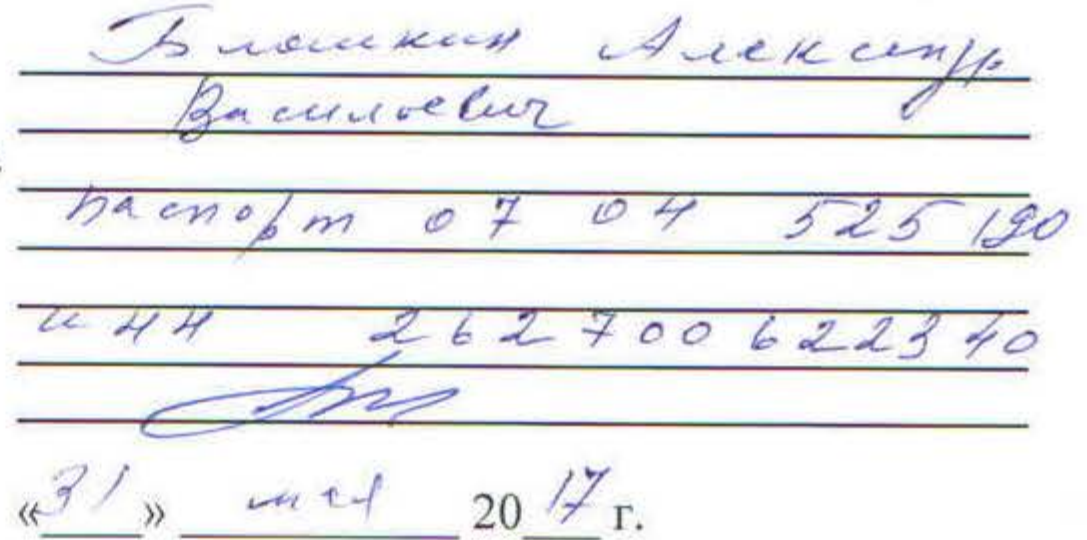 Блошкин Александр
Васильевич
паспорт 07 04 525 190
инн 262 700 622340
«31» мая 2017 г.